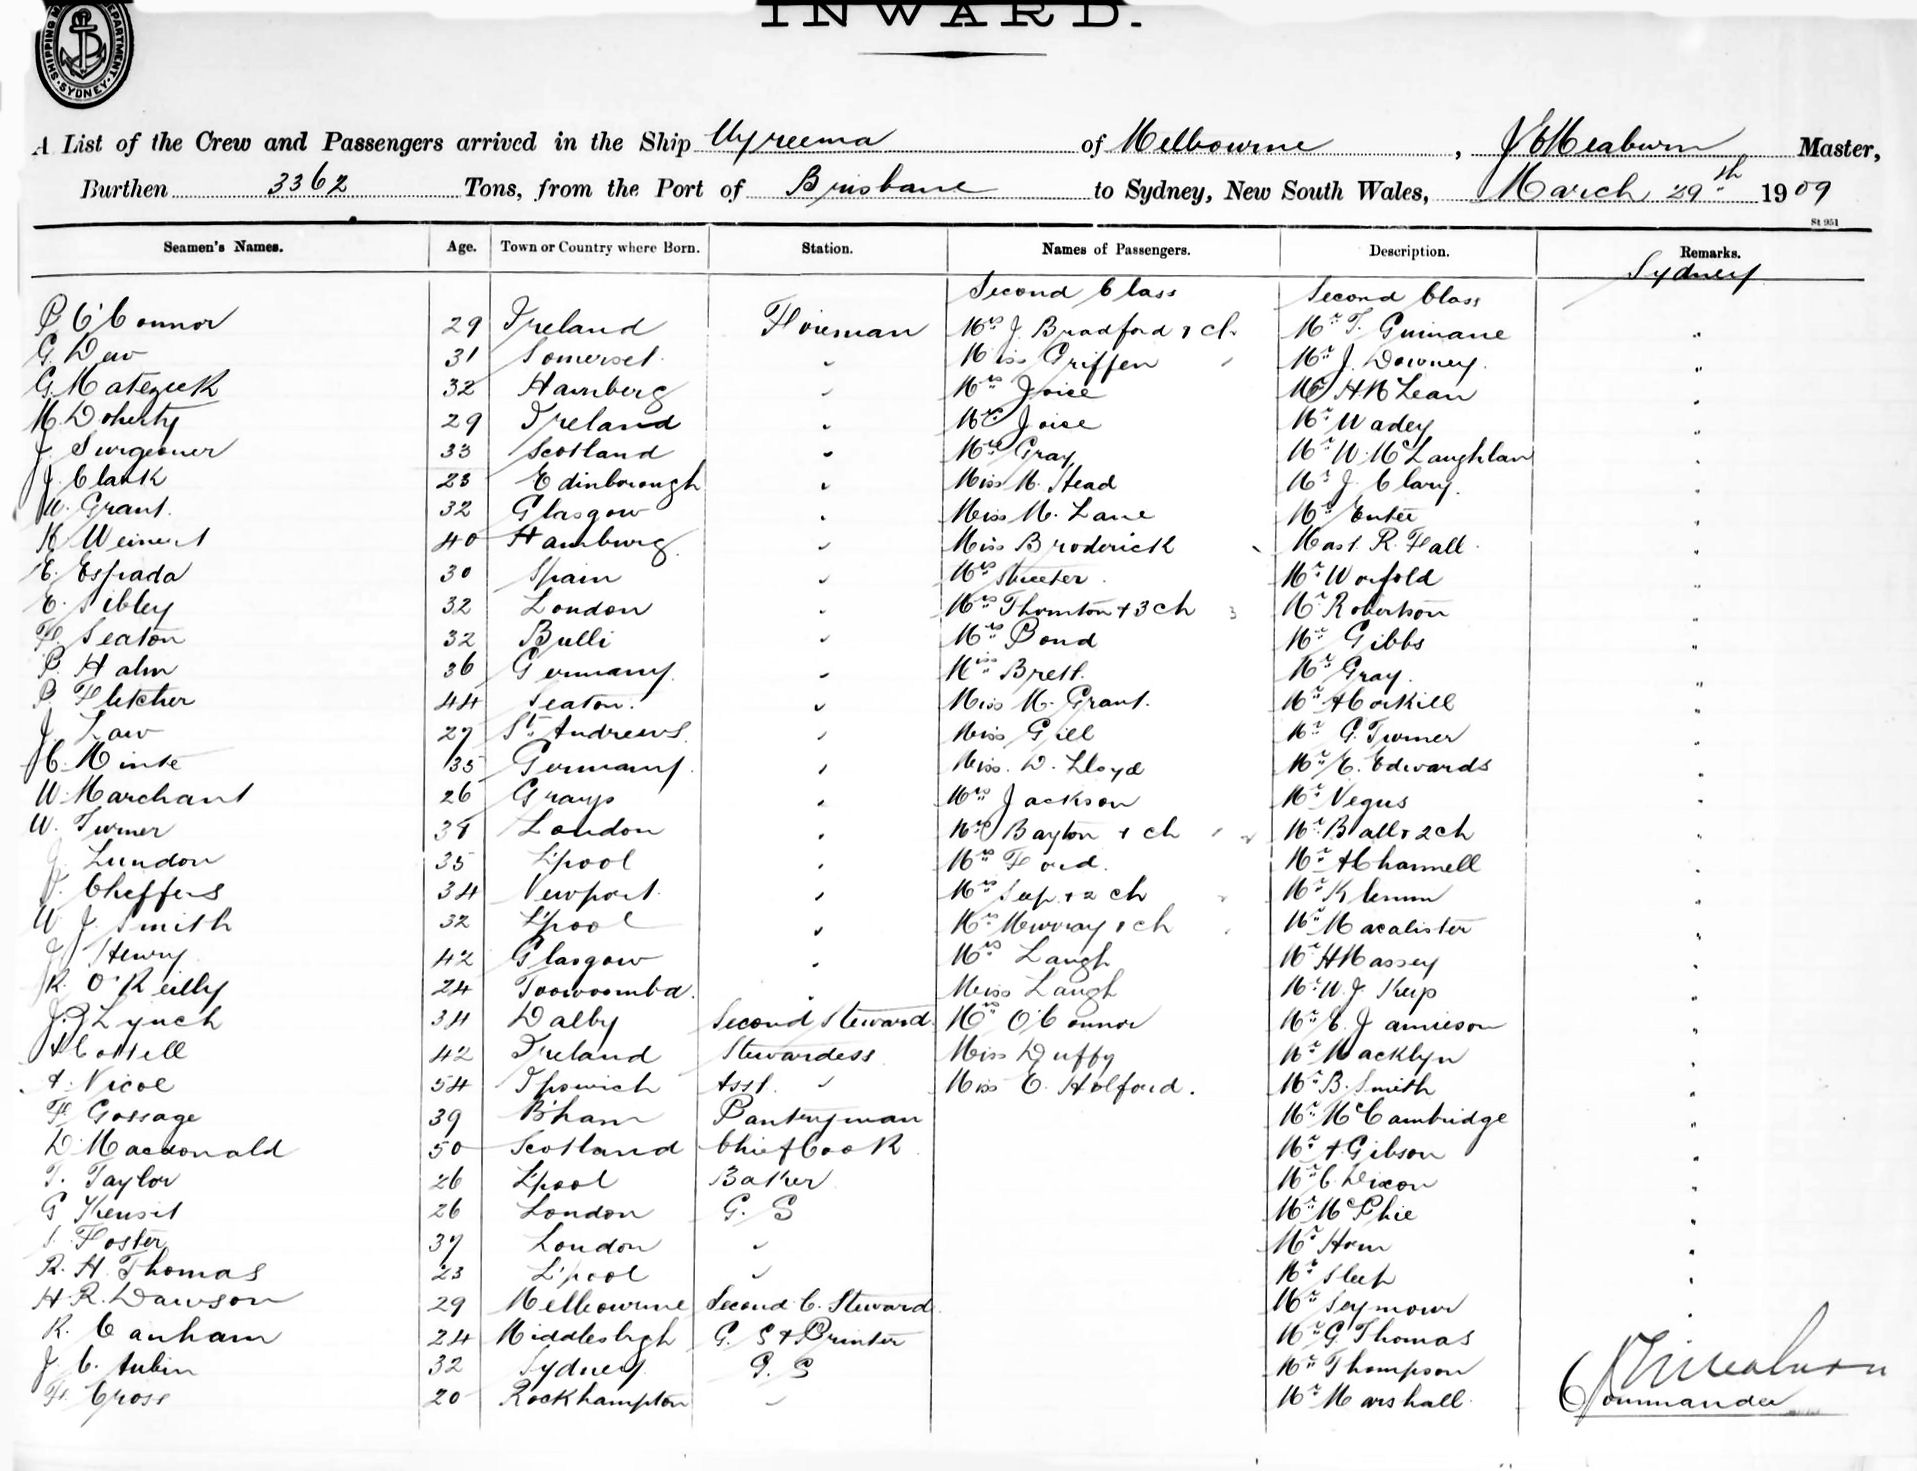 SHIPPING DEPARTMENT. SYDNEY
INWARD.
A List of the Crew and Passengers arrived in the Ship Wyreema of Melbourne, Master,
Burthen 3362 Tons, from the Port of Brisbane to Sydney, New South Wales, March 29th 1909
St 951
Seamen's Names. Age. Town or Country where Born. Station. Names of Passengers. Description. Remarks.
Sydney
Second Class Second Class
P. O'Connor 29 Ireland Fireman Mrs J. Bradford & ch. Mr T. Guinane "
G. Dew 31 Somerset " Miss Griffen Mr J. Downey. "
G. Matezuck 32 Hamberg " Mrs Joice Mr H. McLean "
M. Doherty 29 Ireland " Mr Joice Mr Wadey "
J. Surgeoner 33 Scotland " Gray Mr W. McLaughlan "
J. Clark 23 Edinborough " Miss M. Head Mr J. Clary. "
W. Grant. 32 Glasgow " Miss M. Lane Mr "
K Weinert 40 Hamburg. " Miss Broderick Mast. R. Hall "
E. Estrada 30 Spain " Mrs Mr Worfold "
E. Sibley 32 London " Mrs Thornton & 3 ch 3 Mr Robertson "
F. Seaton 32 Bulli " Mrs Bond Mr Gibbs "
P. Halm 36 Germany. " Miss Brett. Mr Gray. "
P. Fletcher 44 Seaton. " Miss M. Grant. Mr A Corkill "
J. Law 27 St Andrews. " Miss Gill Mr G. Turner "
C. Hinte 35 Germany. " Miss. D. Lloyd Mr E. Edwards "
W. Marchant 26 Grays " Mrs Jackson Mr Negus "
W. Turner 39 London " Bayton & ch Mr Ball & 2 ch "
J. Lundon 35 L'pool " Mrs Ford. Mr A Channell "
Cheffers 34 Newport. " Mrs & 2 ch Mr Klemm "
W J. Smith 32 L'pool " Mrs Murray & ch Mr Macalister "
J Henry 42 Glasgow " Mrs Laugh Mr H Massey "
R. O'Reilly 24 Toowoomba. " Miss Laugh Mr W. J. Keip "
J. J Lynch 34 Dalby Second Steward Mrs O'Connor Mr E. Jamieson "
A Cottell 42 Ireland Stewardess Miss Duffy Mr Macklyn "
A. Nicol 54 Ipswich Asst. " Miss E. Holford. Mr B. Smith "
F Gossage 39 B'ham Pantryman Mr McCambridge "
D. Macdonald 50 Scotland Chief Cook Mr A Gibson "
T. Taylor 26 L'pool Baker Mr C. Dixon "
G Kensit 26 London G. S Mr McPhie "
Foster 37 London " Mr Horn "
R. H. Thomas 23 L'pool " Mr Sleep "
H. R. Dawson 29 Melbourne Second C. Steward Mr Seymour "
R. Canham 24 Middlesbgh G. S & Printer Mr G Thomas
J. C. Aubin 32 Sydney G. S Mr Thompson
F. Cross 20 Rockhampton " Mr Marshall.
Commander